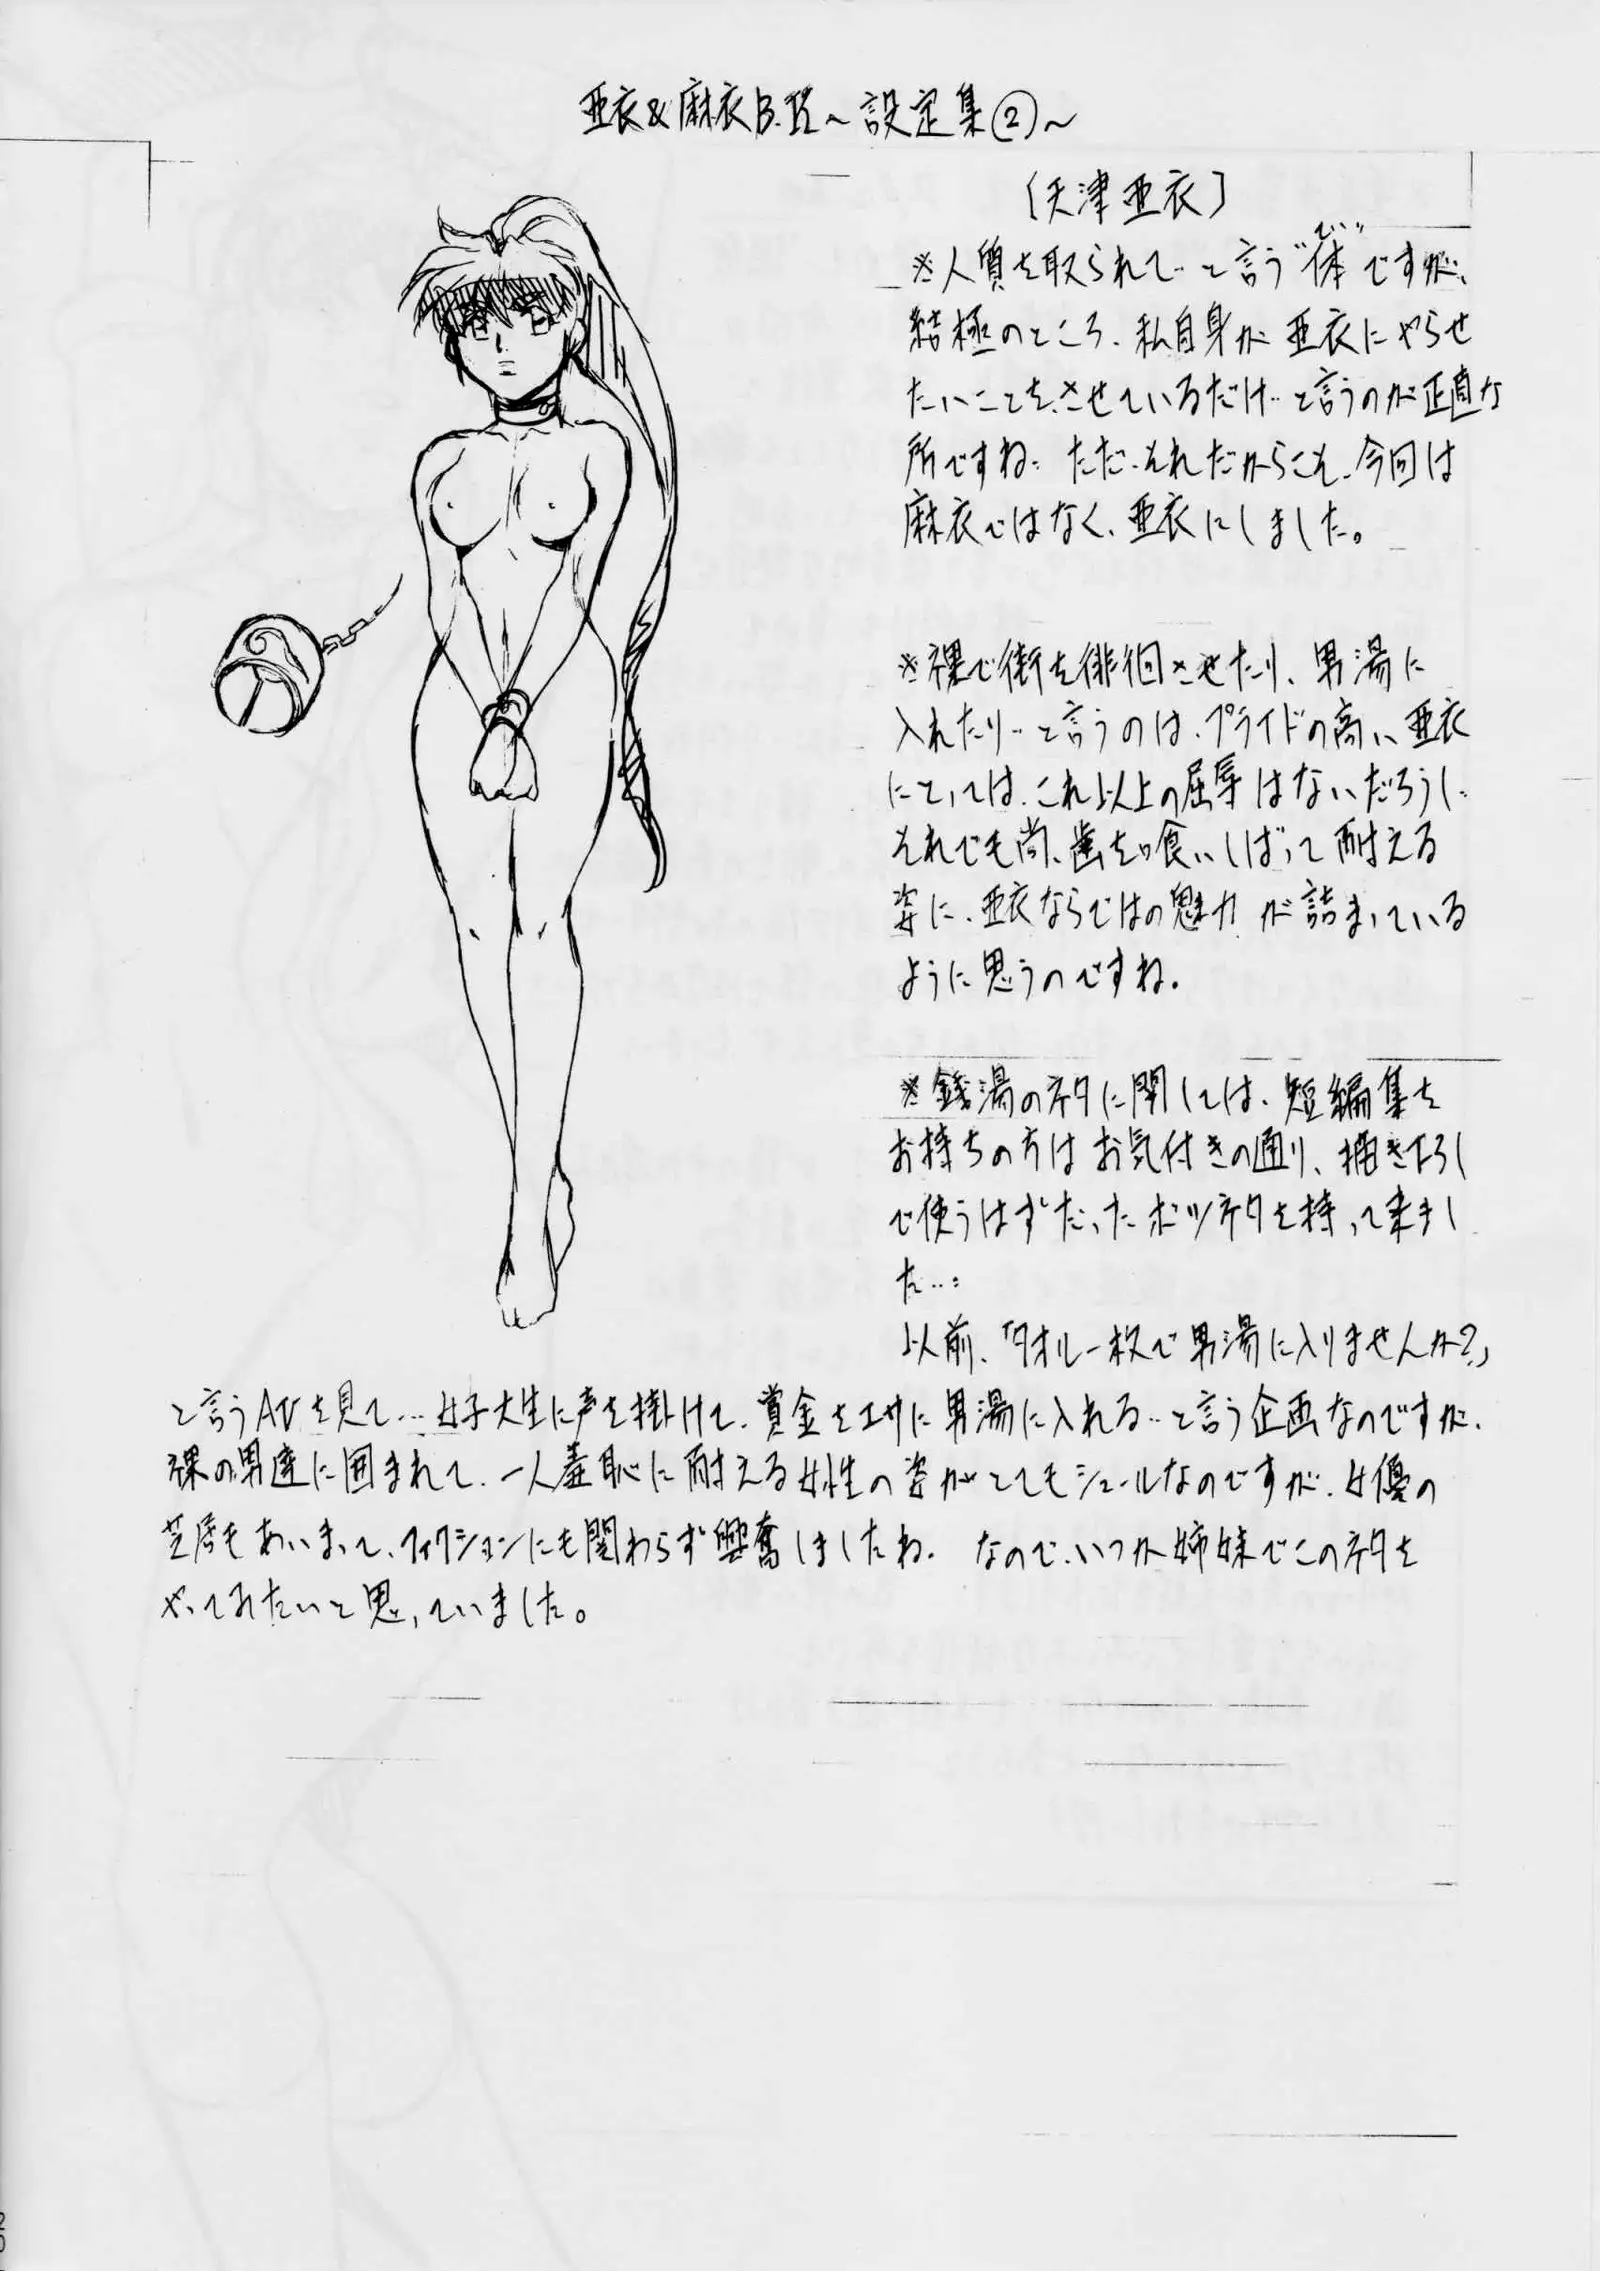 亜衣&麻衣B.R～設定集②～
[天津亜衣]
※人質を取られて…と言う"体"ですが、
てい
結極のところ、私自身が亜衣にやらせ
たいことをさせているだけ…と言うのが正直な
所ですね… ただ、それだからこそ、今回は
麻衣ではなく、亜衣にしました。
※裸で街を徘徊させたり、男湯に
入れたり…と言うのは、プライドの高い亜衣
にとっては、これ以上の屈辱はないだろうし…
それでも尚、歯を喰いしばって耐える
姿に、亜衣ならではの魅力が詰まっている
ように思うのですね。
※銭湯のネタに関しては、短編集を
お持ちの方はお気付きの通り、描き下ろし
で使うはずだったボツネタを持って来まし
た…。
以前、「タオル一枚で男湯に入りませんか?」
と言うAVを見て…女子大生に声を掛けて、賞金をエサに男湯に入れる…と言う企画なのですが、
裸の男達に囲まれて、一人羞恥に耐える女性の姿がとてもシュールなのですが、女優の
芝居もあいまって、フィクションにも関わらず興奮しましたね。 なので、いつか姉妹でこのネタを
やってみたいと思っていました。